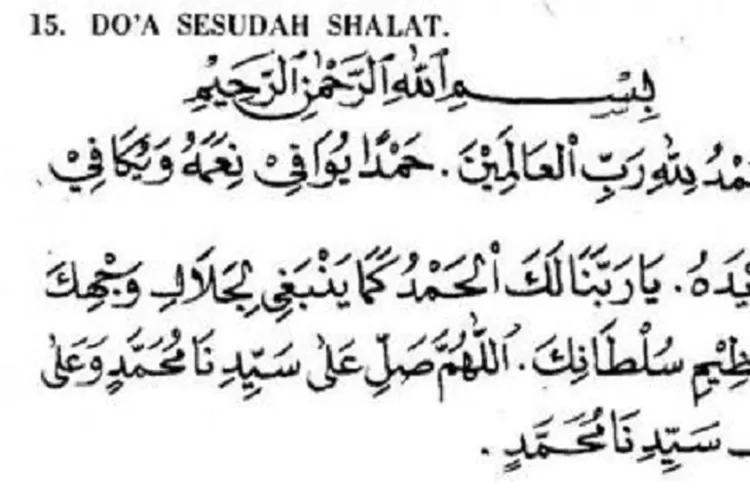 15. DO'A SESUDAH SHALAT.
بِسْمِ اللهِ الرَّحْمٰنِ الرَّحِيْمِ
مْدُ لِلّٰهِ رَبِّ الْعَالَمِيْنَ. حَمْدًا يُوَافِيْ نِعَمَهُ وَيُكَافِيْ
يْدَهُ. يَا رَبَّنَا لَكَ الْحَمْدُ كَمَا يَنْبَغِيْ لِجَلَالِ وَجْهِكَ
ظِيْمِ سُلْطَانِكَ. اَللّٰهُمَّ صَلِّ عَلٰى سَيِّدِنَا مُحَمَّدٍ وَعَلٰى
سَيِّدِنَا مُحَمَّدٍ.